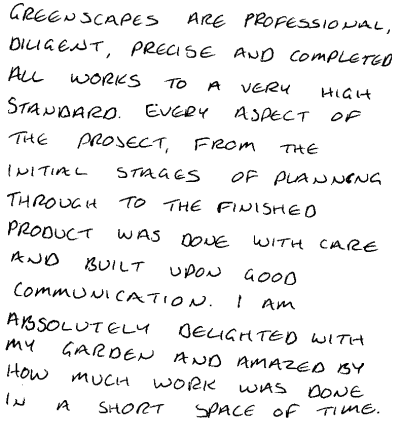 GREENSCAPES ARE PROFESSIONAL,
DILIGENT, PRECISE AND COMPLETED
ALL WORKS TO A VERY HIGH
STANDARD. EVERY ASPECT OF
THE PROJECT, FROM THE
INITIAL STAGES OF PLANNING
THROUGH TO THE FINISHED
PRODUCT WAS DONE WITH CARE
AND BUILT UPON GOOD
COMMUNICATION. I AM
ABSOLUTELY DELIGHTED WITH
MY GARDEN AND AMAZED BY
HOW MUCH WORK WAS DONE
IN A SHORT SPACE OF TIME.